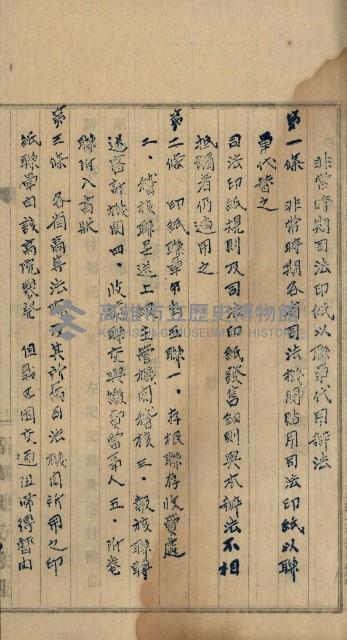 非常時期司法印紙以聯單代用辦法
第一條 非常時期各省司法機関貼用司法印紙以聯
單代替之
司法印紙規則及司法印紙發售細則與本辦法不相
抵觸者仍適用之
第二條 印紙聯單分為五聯一．存根聯存收費處
二．稽核聯呈送上級主管機関稽核三．報核聯轉
送審計機関四．收據聯交與繳費當事人五．附卷
聯附入書狀
第三條 各省高等法院及其所屬司法機関所用之印
紙聯單由該高院製發 但戰區因交通阻滯得暫由
高雄市立歷史博物館
KAOHSIUNG MUSEUM OF HISTORY